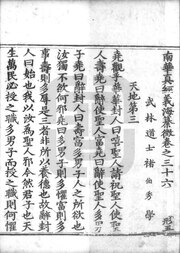 南華真經義海纂微卷之三十六 形五
武林道士褚伯秀學
天地第三
堯觀乎華華封人曰嘻聖人請祝聖人使聖
人壽堯曰辭使聖人富堯曰辭使聖人多男
子堯曰辭封人曰壽富多男子人之所欲也
汝獨不欲何邪堯曰多男子則多懼富則多
事壽則多辱是三者非所以養德也故辭封
人曰始也我以汝為聖人邪今然君子也天
生萬民必授之職多男子而授之職則何懼